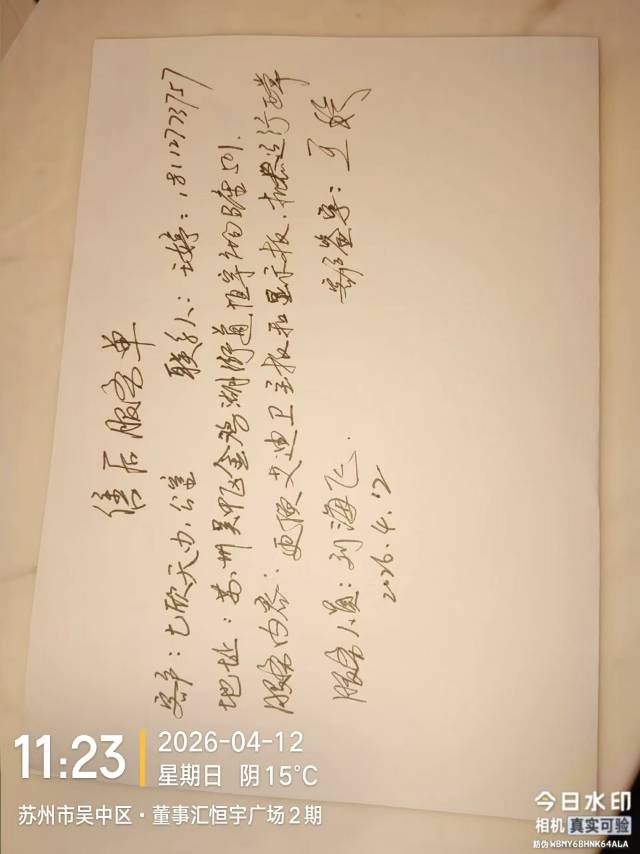 售后服务单
客户：七欣天办公室 联系人：王婷：18112773757
地址：苏州吴中区金鸡湖街道恒宇广场B座501.
服务内容：更换艾迪卫主板和显示板，机器运行正常
服务人员：刘海飞. 客户签字：王婷
2026.4.12
11:23
2026-04-12
星期日 阴 15℃
苏州市吴中区·董事汇恒宇广场2期
今日水印
相机 真实可验
防伪 WBMY6BHNK64ALA